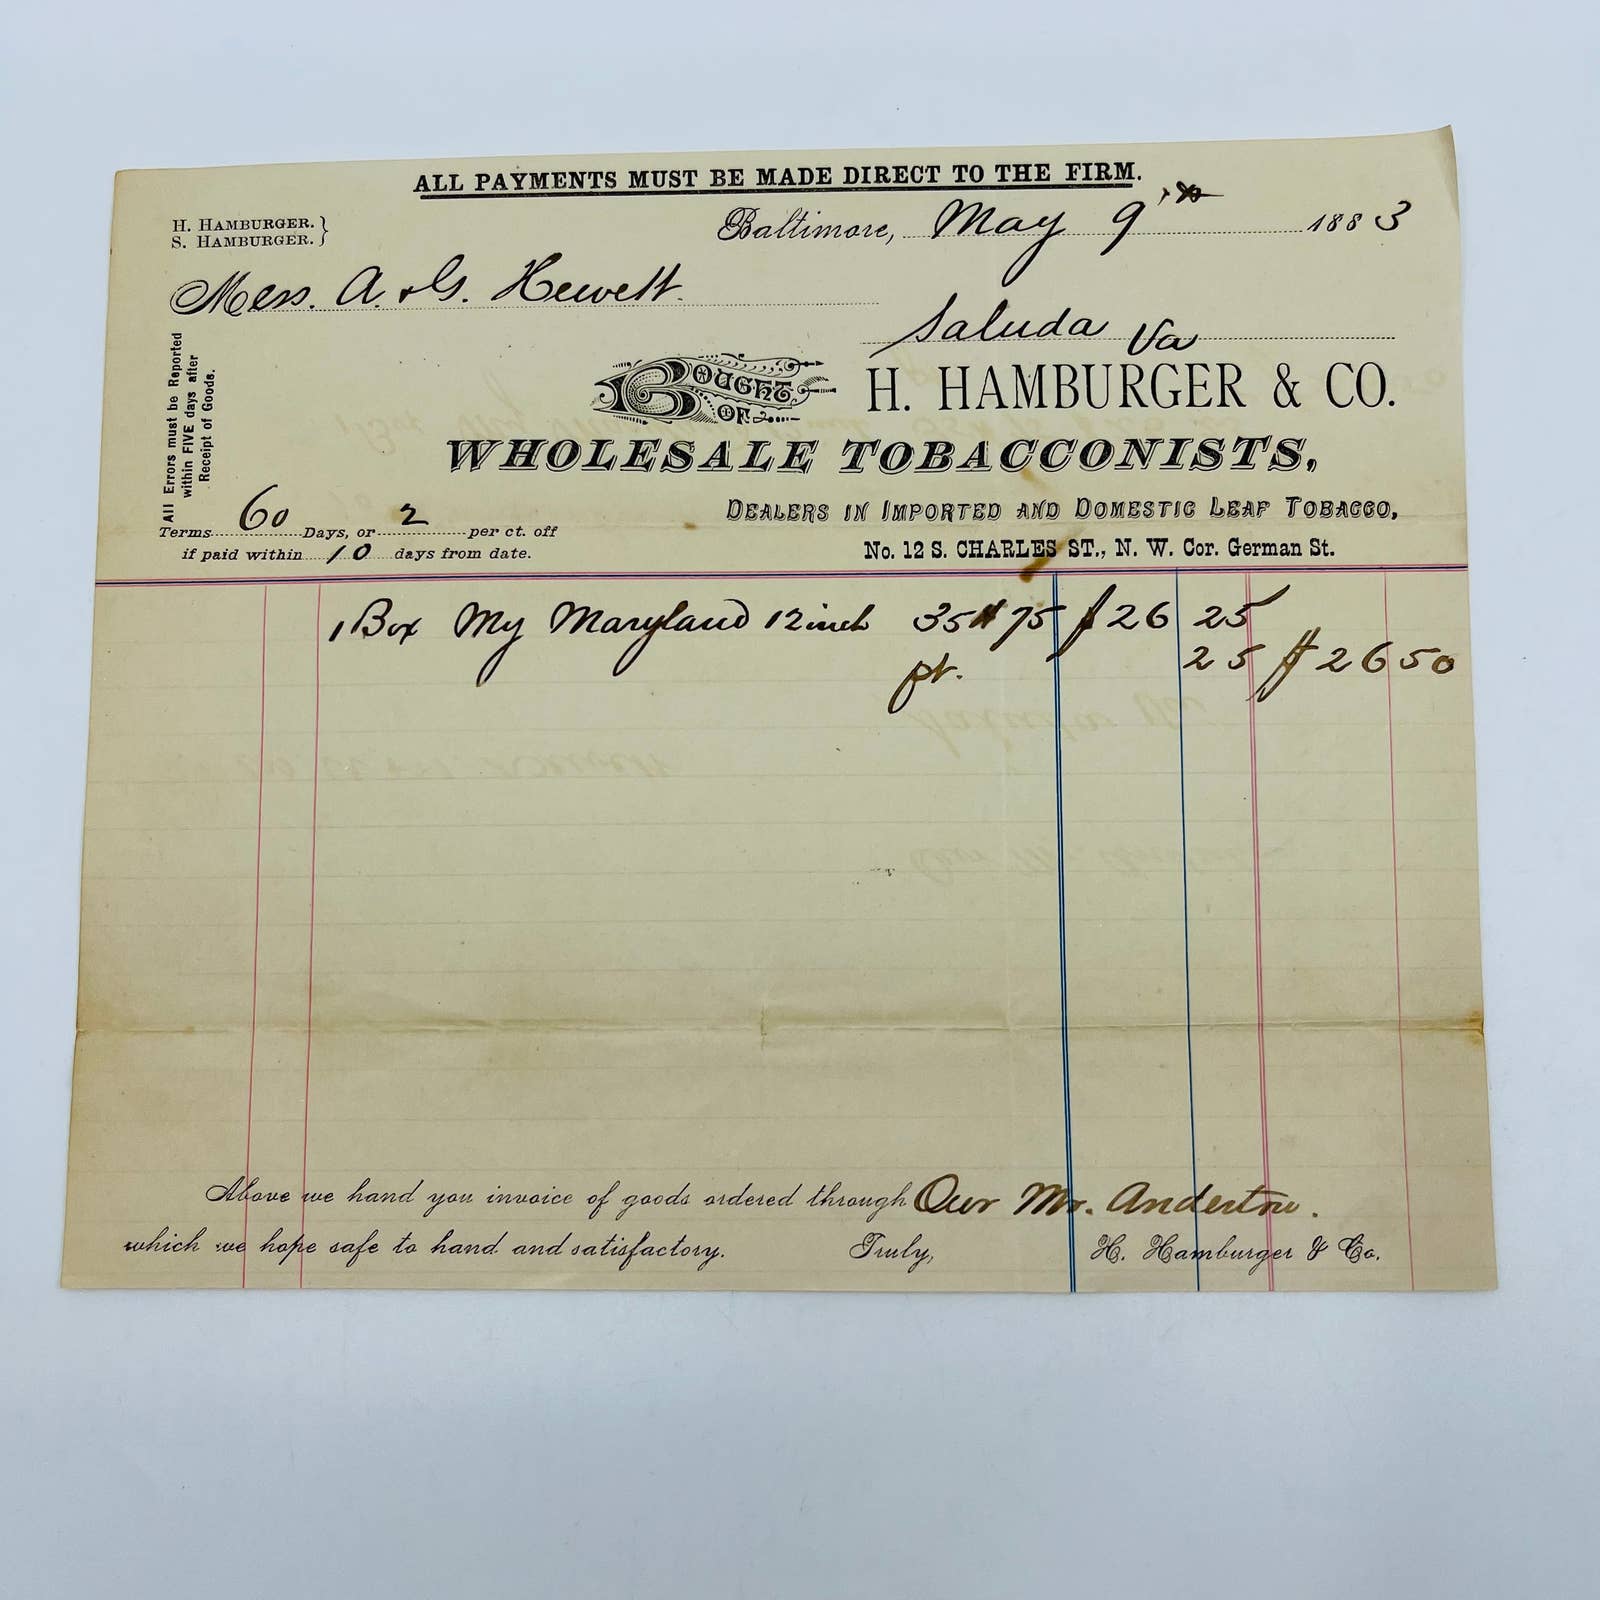 ALL PAYMENTS MUST BE MADE DIRECT TO THE FIRM.
H. HAMBURGER.
S. HAMBURGER.
Baltimore, May 9th 1883
Mess. A. & G. Hewett.
Saluda Va
All Errors must be Reported
within FIVE days after
Receipt of Goods.
BOUGHT OF H. HAMBURGER & CO.
WHOLESALE TOBACCONISTS,
DEALERS IN IMPORTED AND DOMESTIC LEAF TOBACCO,
No. 12 S. CHARLES ST., N. W. Cor. German St.
Terms 60 Days, or 2 per ct. off
if paid within 10 days from date.
1 Box My Maryland 12 inch 35# 75 $26 25
25 $26 50
Above we hand you invoice of goods ordered through Our Mr. Anderton.
which we hope safe to hand and satisfactory. Truly, H. Hamburger & Co.